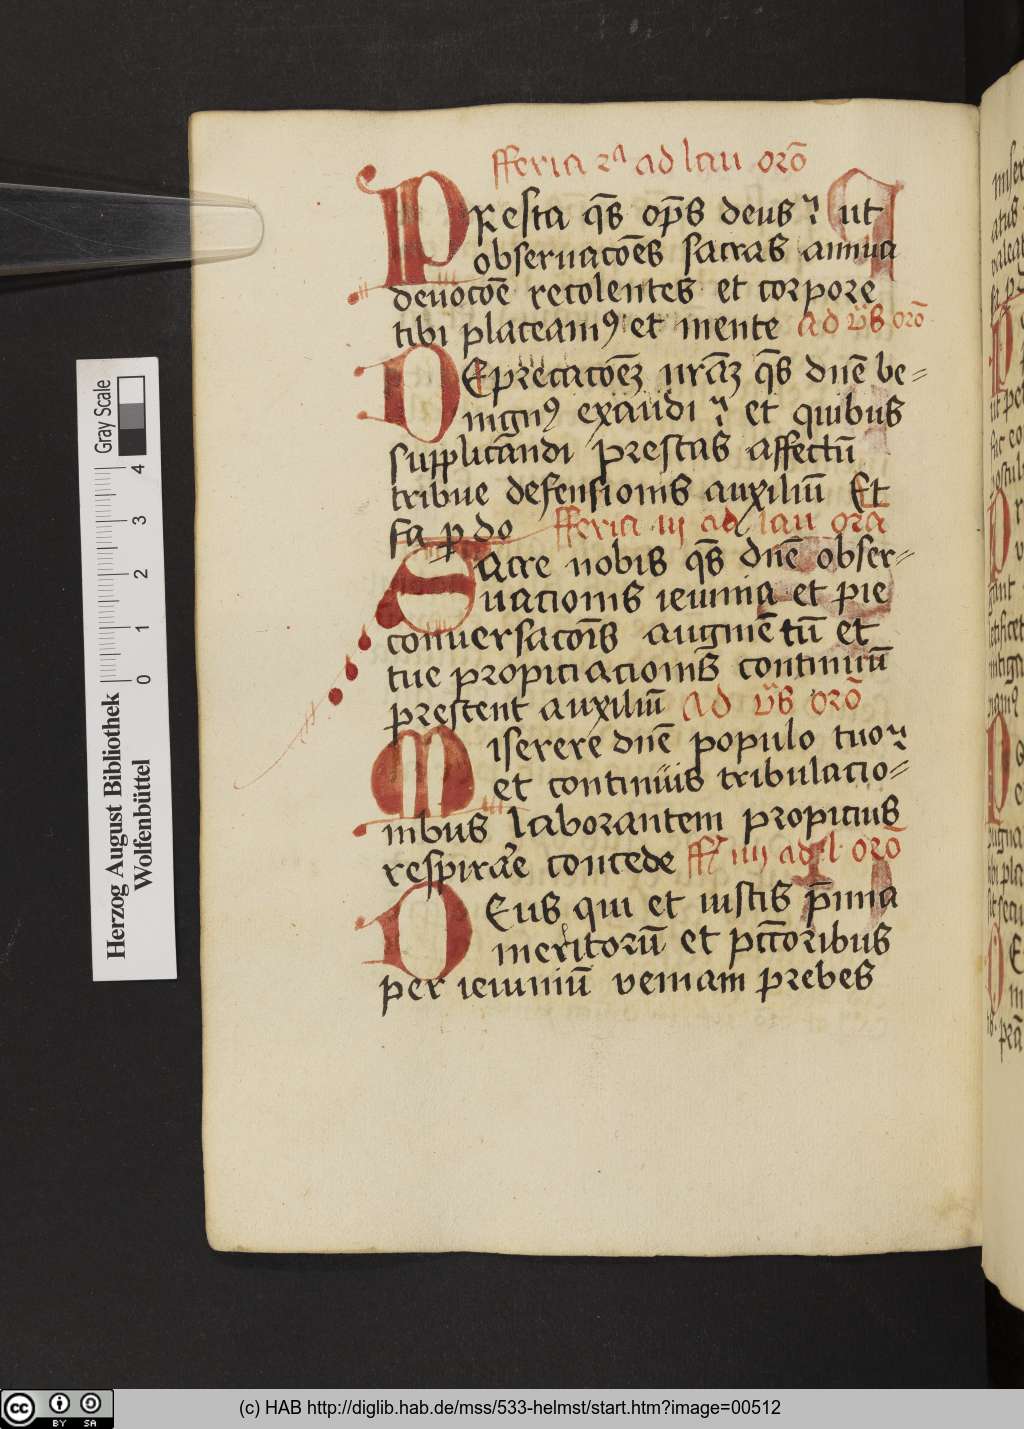 fferia 2ª ad lau orō
PResta q̄s op̄s deus ut
obseruacōēs sacras annua
deuocōē recolentes et corpore
tibi placeamꝰ et mente ad v̄s orō
DEprecacōēꝫ nr̄aꝫ q̄s dn̄e be=
nignꝰ exaudi et quibus
supplicandi prestas affectū
tribue defensionis auxiliū Et
fa ꝑ do fferia iij ad lau ora
SAcre nobis q̄s dn̄e obser=
uacionis ieiunia et pie
conuersacōis augmētū et
tue propiciacionis continuū
prestent auxiliū Ad v̄s orō
Miserere dn̄e populo tuoꝝ
et continuis tribulacio=
nibus laborantem propicius
respirare concede ff iiij ad l orō
DEus qui et iustis p̄mia
meritorū et pcc̄oribus
per ieiuniū veniam prebes
Herzog August Bibliothek
Wolfenbüttel
Gray Scale
0 1 2 3 4
cc BY SA
(c) HAB http://diglib.hab.de/mss/533-helmst/start.htm?image=00512